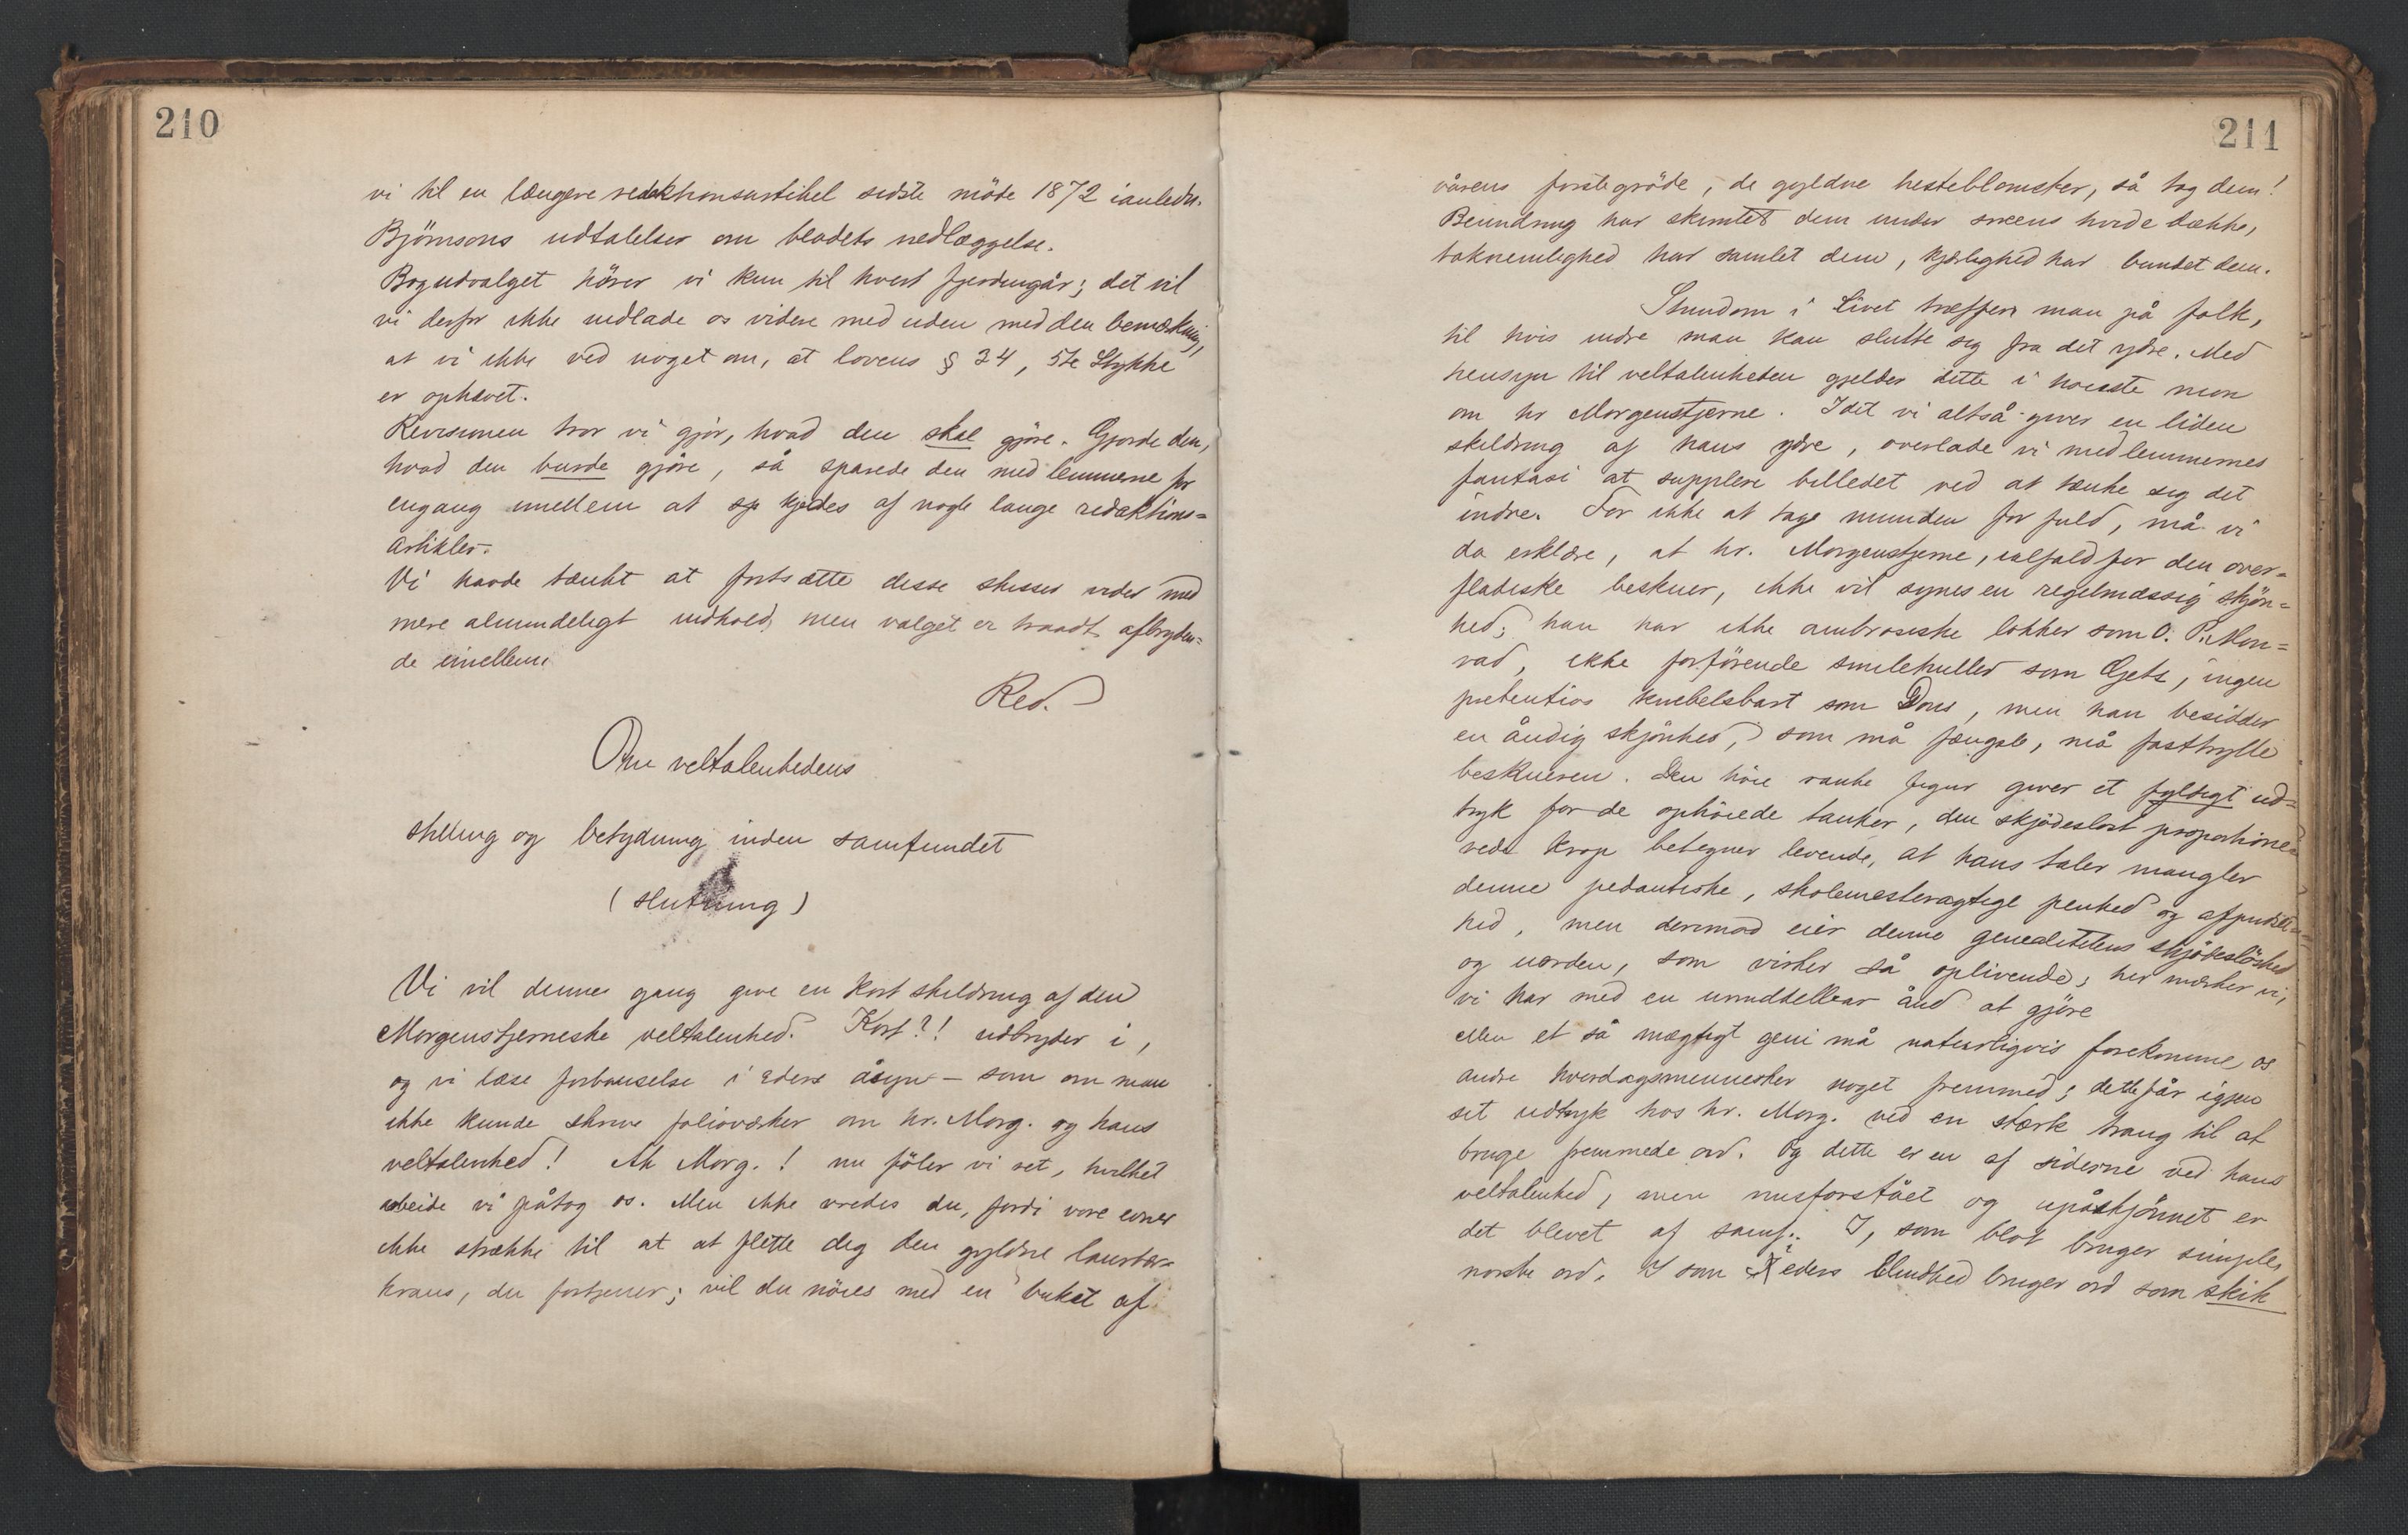 210
vi til en længere redaktionsartikel sidste möde 1872 ianledn.
Björnsons udtalelser om bladets nedlæggelse.
Bogudvalget hörer vi kun til hvert fjerdingår; det vil
vi derfor ikke indlade os videre med uden med den bemærkning,
at vi ikke ved noget om, at lovens § 24, 5te Stykke
er ophævet.
Revisionen tror vi gjör, hvad den skal gjöre. Gjorde den,
hvad den burde gjöre, så sparede den medlemmerne for
engang imellem at kjedes af nogle lange redaktions=
artikler.
Vi havde tænkt at fortsætte disse skisser videre med
mere almindeligt indhold, men valget er traadt afbryden=
de imellem.
Red.
Om veltalenhedens
stilling og betydning inden samfundet
(slutning)
Vi vil denne gang give en kort skildring af den
Morgenstjerneske veltalenhed. Kort?! udbryder i,
og vi læse forbauselse i eders åsyn – som om man
ikke kunde skrive folioværker om hr. Morg. og hans
veltalenhed! Ak Morg.! nu föler vi ret, hvilket
arbeide vi påtog os. Men ikke vredes du, fordi vore evner
ikke strække til at at flette dig den gyldne laurbær=
krans, du fortjener; vil du nöies med en buket af
211
vårens förstegröde, de gyldne hesteblomster, så tag dem!
Beundring har skimtet dem under sneens hvide dække,
taknemlighed har samlet dem, kjærlighed har bundet dem.
Stundom i Livet træffer man på folk,
til hvis indre man kan slutte sig fra det ydre. Med
hensyn til veltalenheden gjelder dette i hoieste mon
om hr Morgenstjerne. Idet vi altså giver en liden
skildring af hans ydre, overlade vi medlemmernes
fantasi at supplere billedet ved at tænke sig det
indre. For ikke at tage munden for fuld, må vi
da erklære, at hr. Morgenstjerne, ialfald for den over=
fladiske beskuer, ikke vil synes en regelmæssig skjön=
hed; han har ikke ambrosiske lokker som O. P. Mon=
rad, ikke forförende smilehuller som Gjets, ingen
pretentiös knebelsbart som Dons, men han besidder
en åndig skjönhed, som må fængsle, må fasttrylle
beskueren. Den höie ranke figur giver et fyldigt ud=
tryk for de ophöiede tanker, den skjödeslöst proportione=
rede krop betegner levende, at hans taler mangler
denne pedantiske, skolemesteragtige penhed og afpudset=
hed, men derimod eier denne genialitetens skjödeslöshed
og uorden, som virker så oplivende; her mærker vi,
vi har med en umiddelbar ånd at gjöre
Men et så mægtigt geni må naturligvis forekomme os
andre hverdagsmennesker noget fremmed; dette får igjen
sit udtryk hos hr. Morg. ved en stærk trang til at
bruge fremmede ord. Og dette er en af siderne ved hans
veltalenhed, men misforstået og upåskjönnet er
det blevet af samf.. I, som blot bruger simple,
norske ord, I som i eders blindhed bruger ord som skik